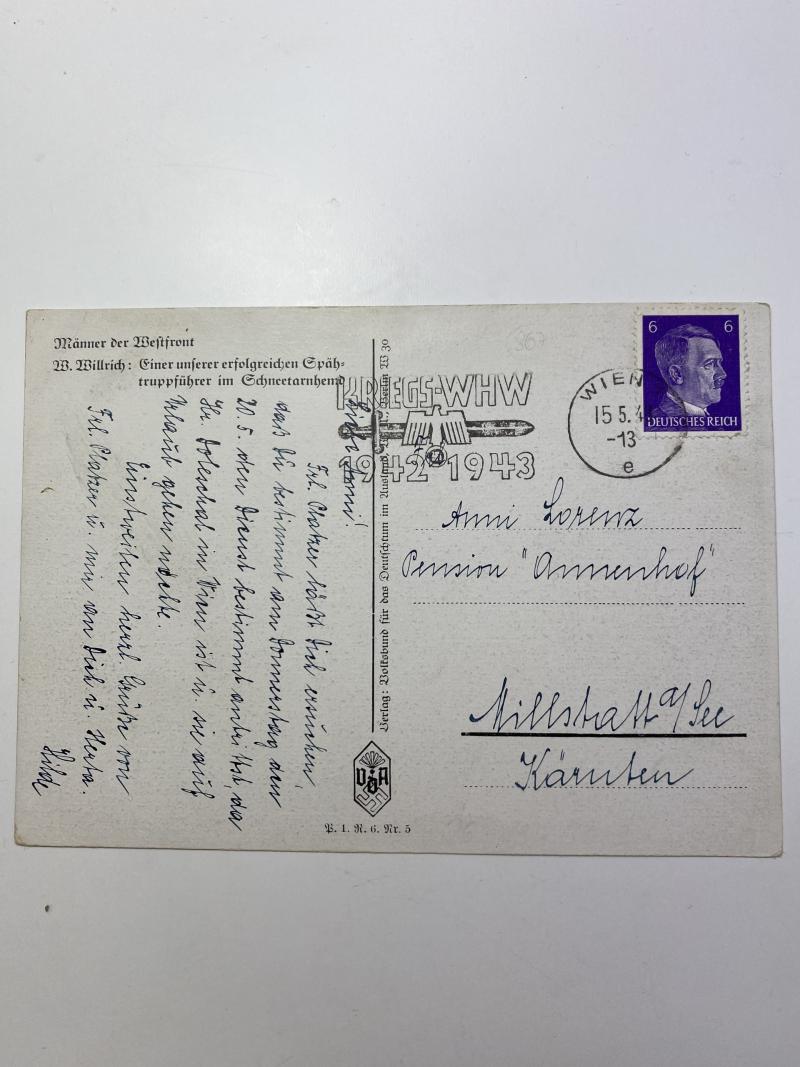 Männer der Westfront
W. Willrich: Einer unserer erfolgreichen Späh-
truppführer im Schneetarnhemd
Liebe Anni!
Frl. Platzer läßt Dich ersuchen,
daß Du bestimmt am Donnerstag den
20. 5. den Dienst bestimmt antrittst, da
Hr. Doleschal in Wien ist u. sie auf
Urlaub gehen möchte.
Einstweilen herzl. Grüße von
Frl. Platzer u. mir an Dich u. Herta.
Hilde
Verlag: Volksbund für das Deutschtum im Ausland, Berlin W 30
VDA
P. 1. R. 6. Nr. 5
367
KRIEGS-WHW
1942 1943
WIEN
15 5. 4
-13
e
6 6
DEUTSCHES REICH
Anni Lorenz
Pension "Annenhof"
Millstatt a/See
Kärnten